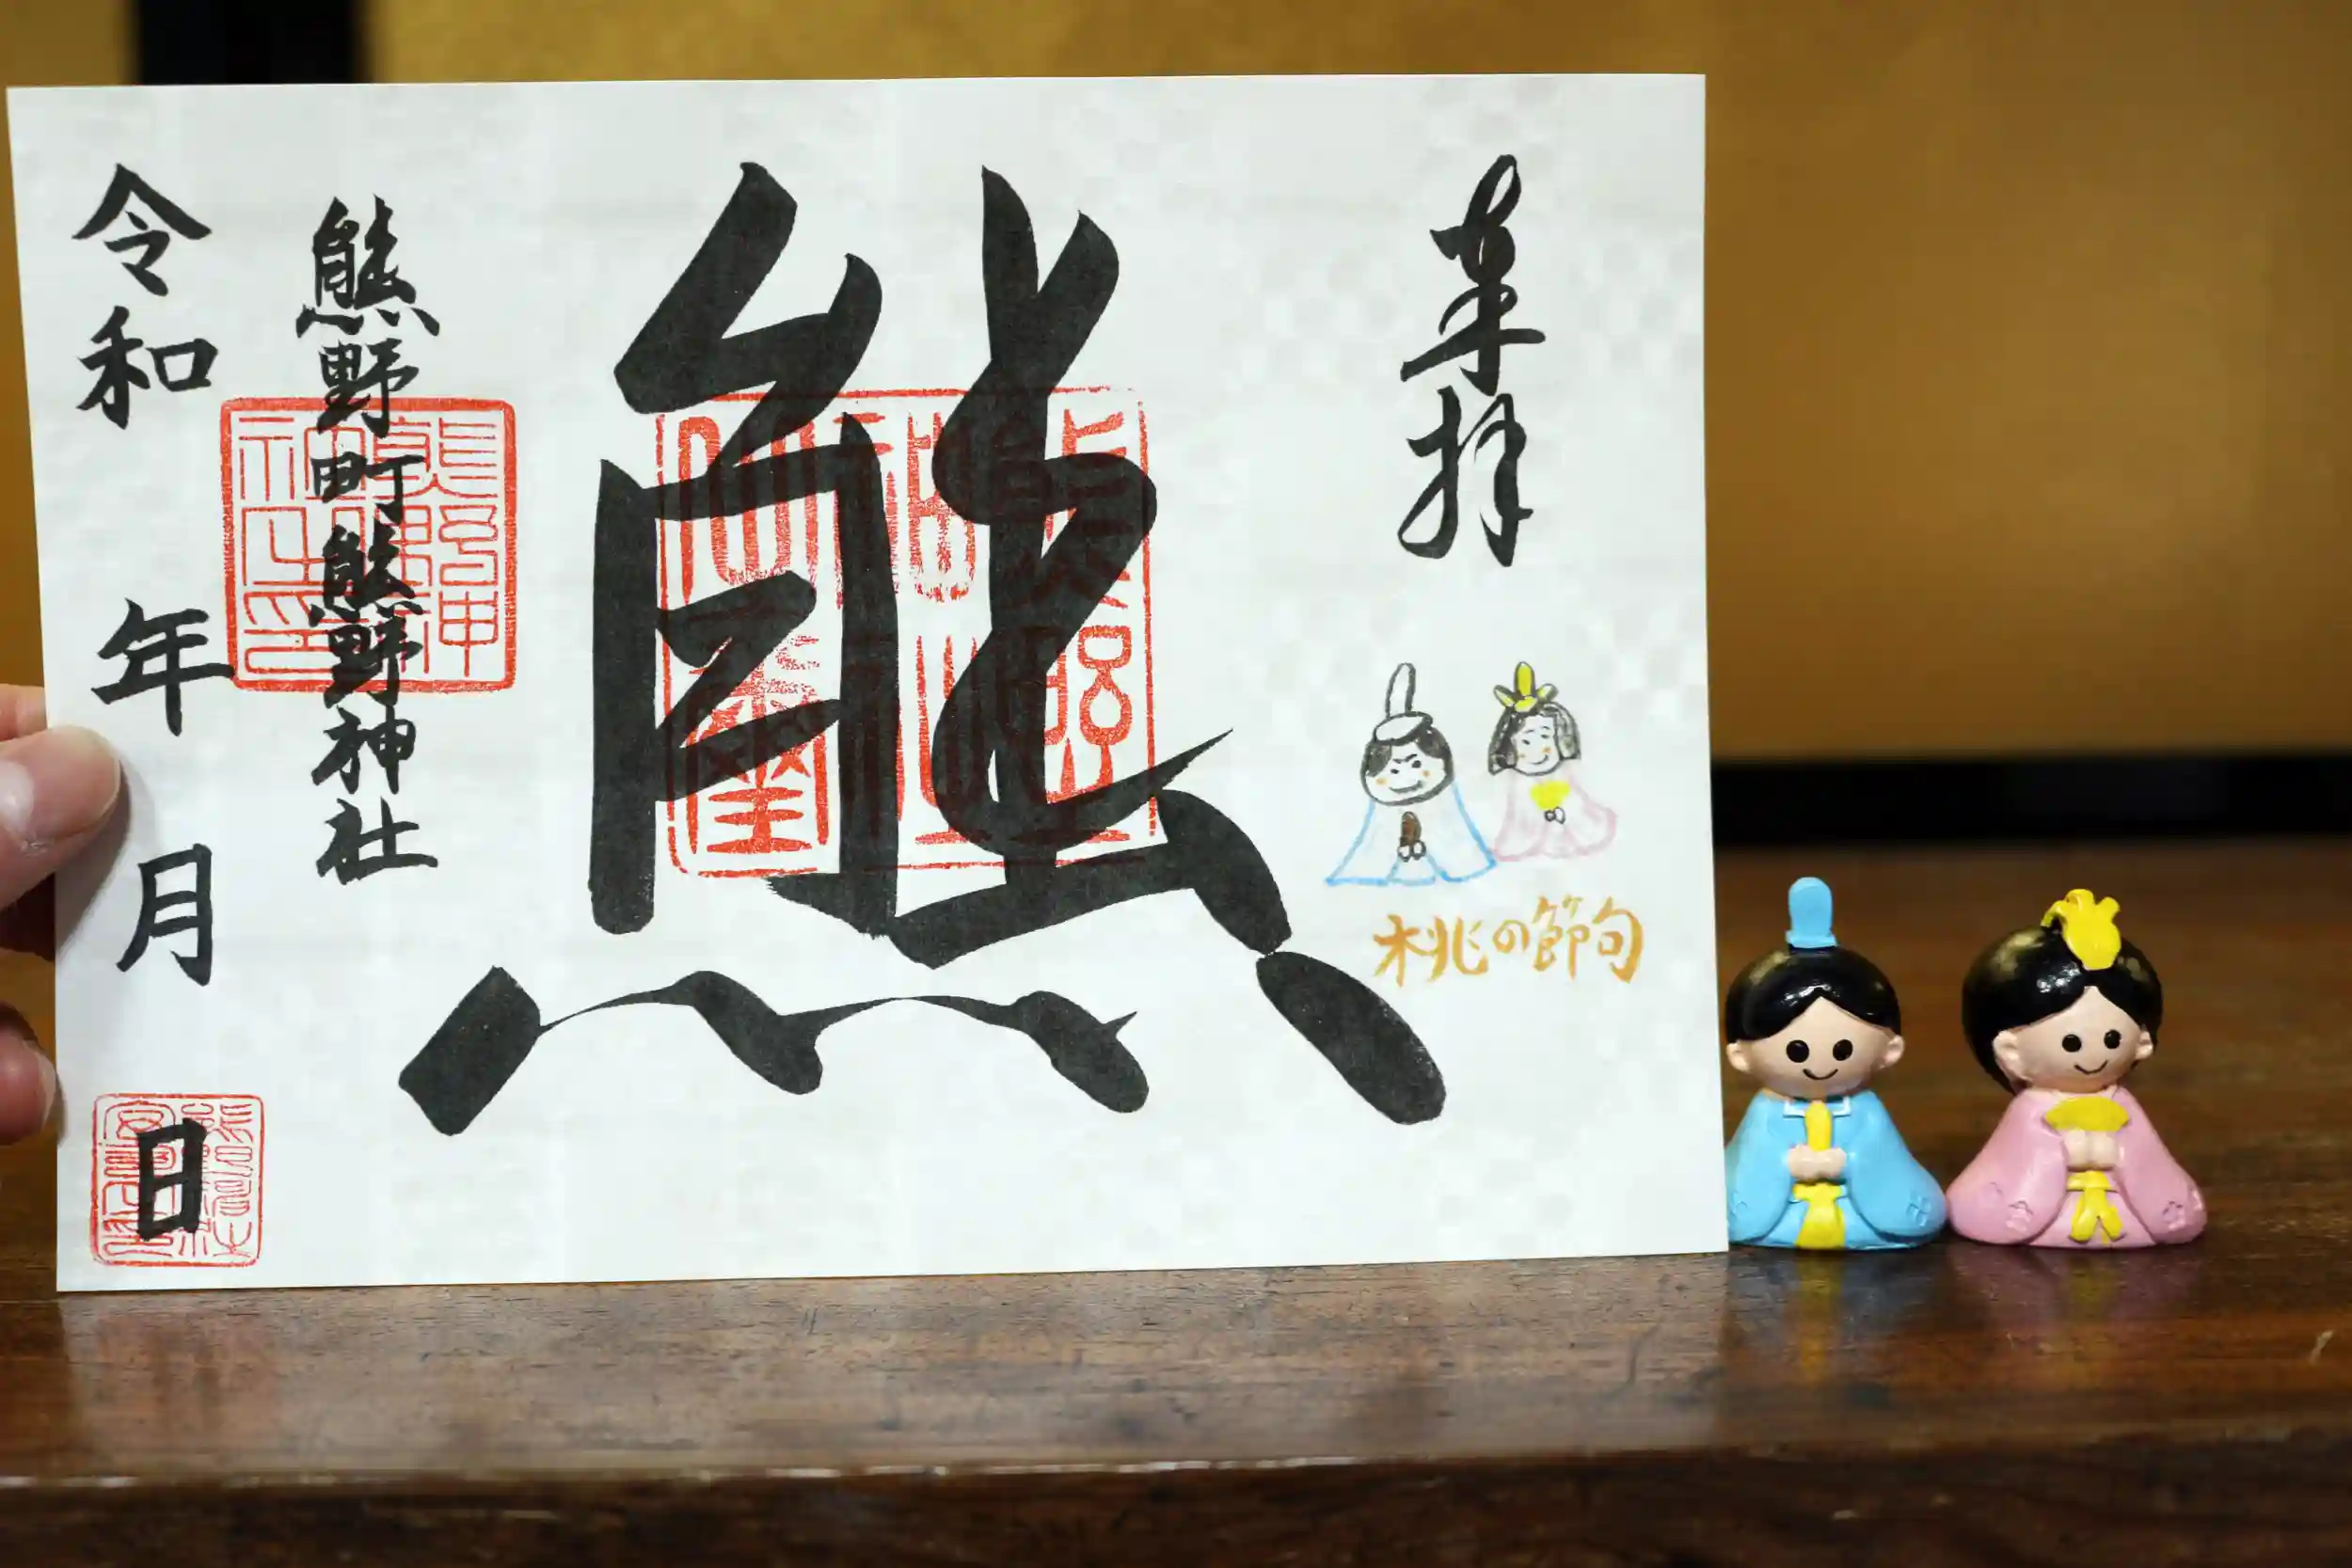 奉拝
桃の節句
熊
熊野町熊野神社
令和 年 月 日